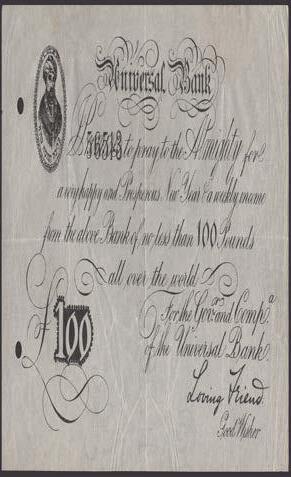 Universal Bank
No 36513 to pray to the Almighty for
a very happy and Prosperous New Year & a weekly income
from the above Bank of no less than 100 Pounds
all over the world
For the Govr. and Compa.
of the Universal Bank.
£100
Loving Friend.
Good Wisher